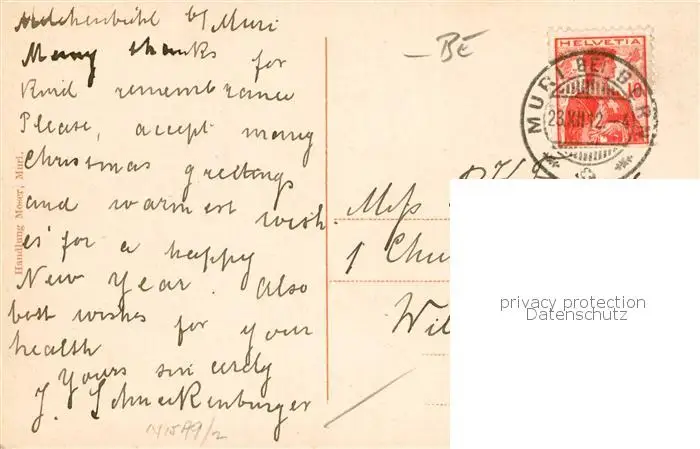 Melchenbühl b/ Muri
Many thanks for
kind remembrance
Please, accept many
Christmas greetings
and warmest wish
es for a happy
New Year. Also
best wishes
for your
health
Yours sincerely
J. Schneckenburger
Handlung Moser, Muri.
BE
HELVETIA
MURI BEI BERN
28.XII.12
Miss
1 Chu
Wil
privacy protection
Datenschutz